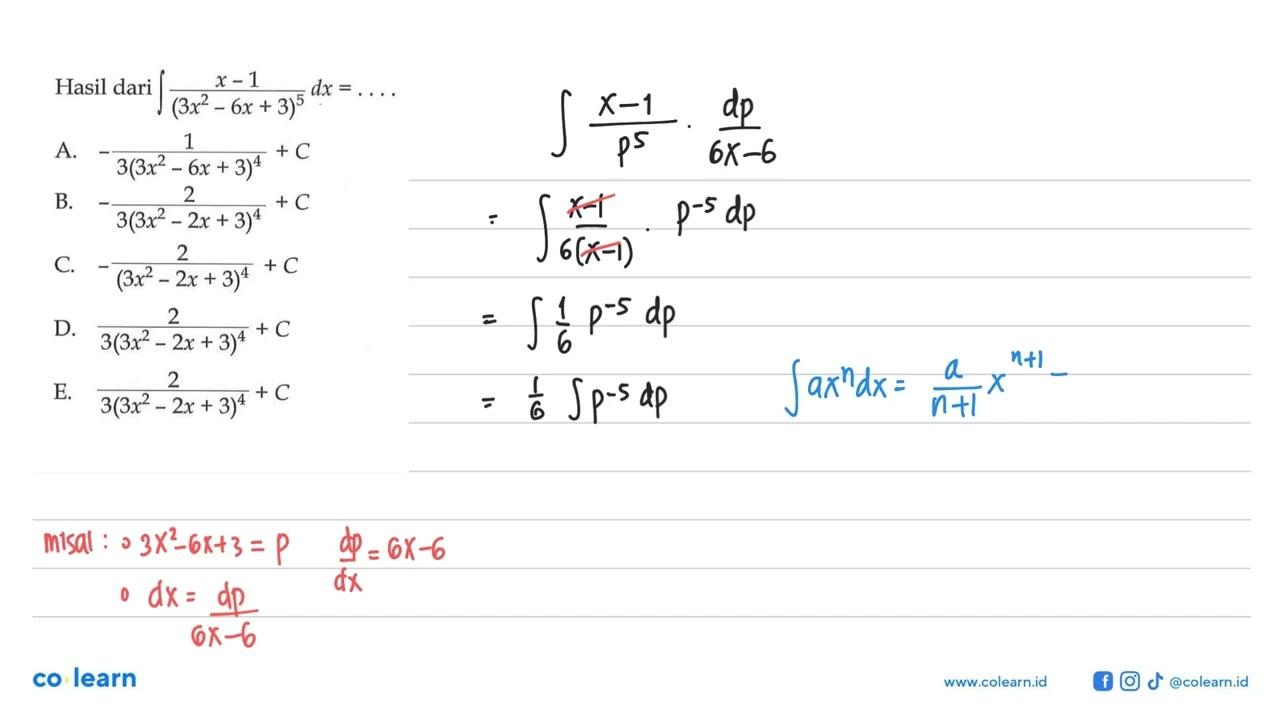 Hasil dari ∫ (x – 1)/((3x² – 6x + 3)⁵) dx = . . . .
A. –1/(3(3x² – 6x + 3)⁴) + C
B. –2/(3(3x² – 2x + 3)⁴) + C
C. –2/((3x² – 2x + 3)⁴) + C
D. 2/(3(3x² – 2x + 3)⁴) + C
E. 2/(3(3x² – 2x + 3)⁴) + C
∫ (x–1)/p⁵ · dp/(6x–6)
= ∫ (x–1)/(6(x–1)) · p⁻⁵ dp
= ∫ 1/6 p⁻⁵ dp
= 1/6 ∫ p⁻⁵ dp
∫ axⁿ dx = a/(n+1) xⁿ⁺¹ –
misal : • 3x²–6x+3 = p dp/dx = 6x–6
• dx = dp/(6x–6)
co learn
www.colearn.id
@colearn.id